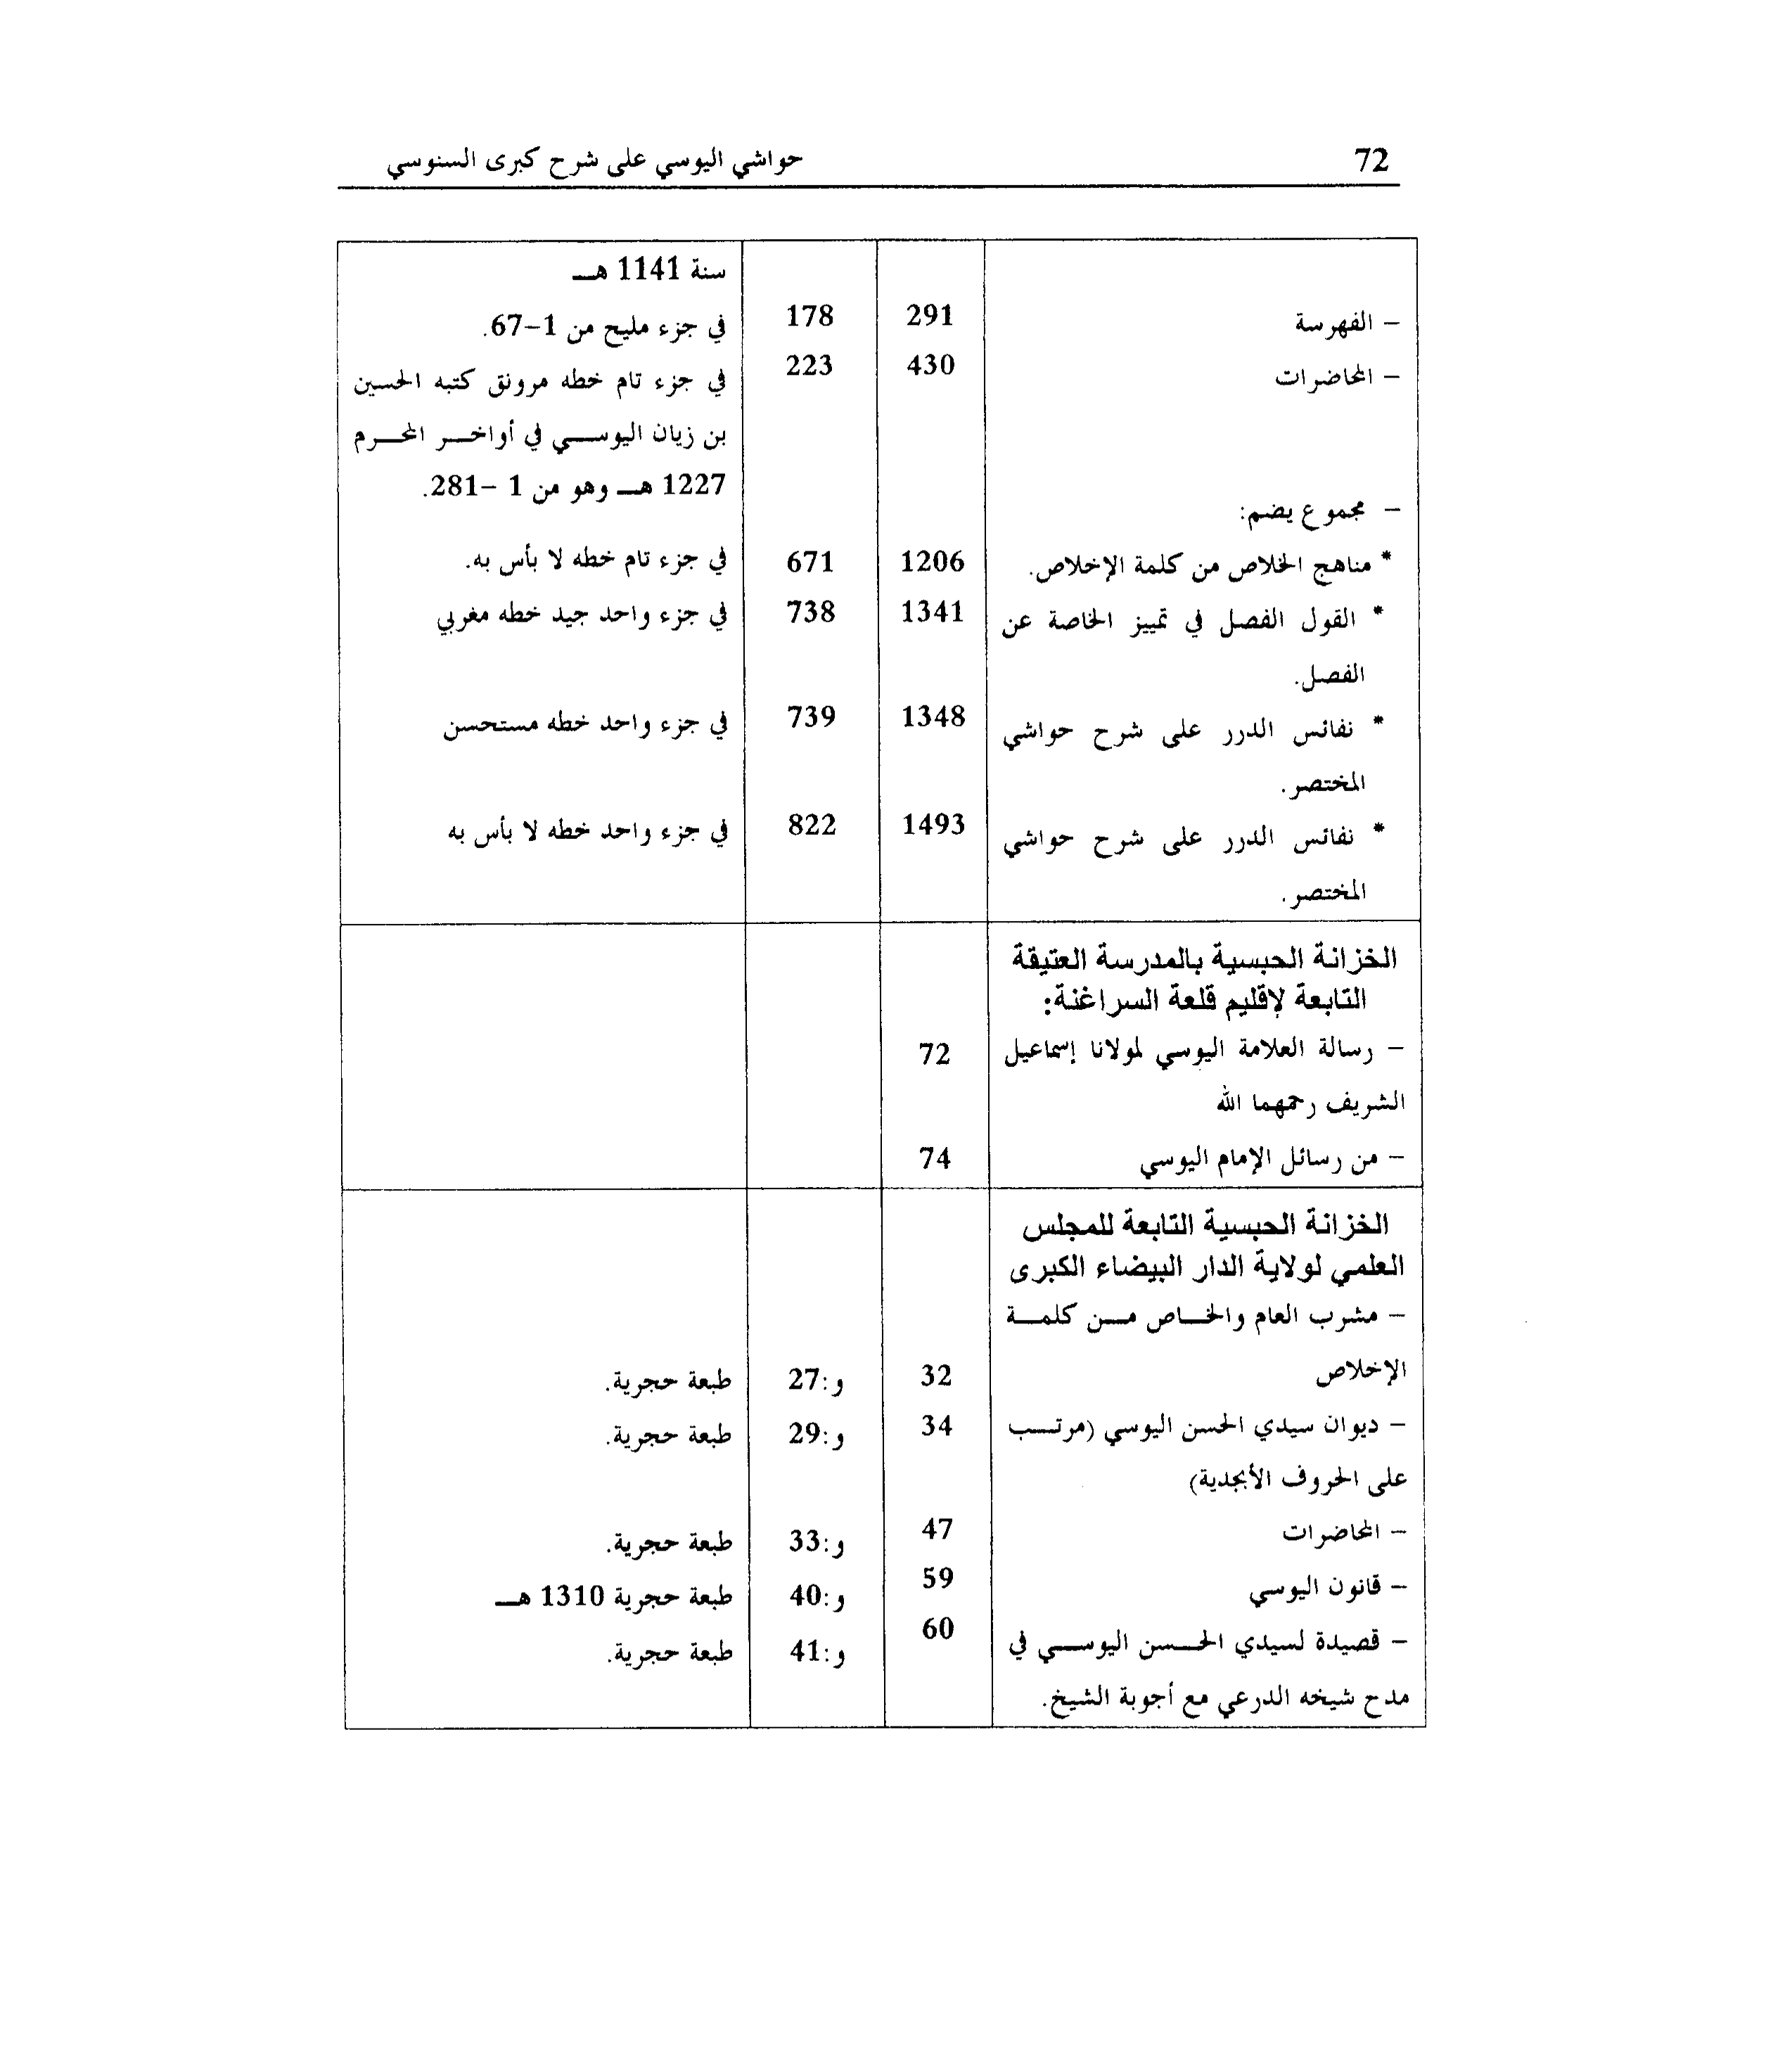 72 حواشي اليوسي على شرح كبرى السنوسي
سنة 1141 هـ
– الفهرسة 291 178 في جزء مليح من 1–67.
– المحاضرات 430 223 في جزء تام خطه مرونق كتبه الحسين
بن زيان اليوسي في أواخر المحرم
1227 هـ وهو من 1 –281.
– مجموع يضم:
* مناهج الخلاص من كلمة الإخلاص. 1206 671 في جزء تام خطه لا بأس به.
* القول الفصل في تمييز الخاصة عن 1341 738 في جزء واحد جيد خطه مغربي
الفصل.
* نفائس الدرر على شرح حواشي 1348 739 في جزء واحد خطه مستحسن
المختصر.
* نفائس الدرر على شرح حواشي 1493 822 في جزء واحد خطه لا بأس به
المختصر.
الخزانة الحبسية بالمدرسة العتيقة
التابعة لإقليم قلعة السراغنة:
– رسالة العلامة اليوسي لمولانا إسماعيل 72
الشريف رحمهما الله
– من رسائل الإمام اليوسي 74
الخزانة الحبسية التابعة للمجلس
العلمي لولاية الدار البيضاء الكبرى
– مشرب العام والخاص من كلمة
الإخلاص 32 و:27 طبعة حجرية.
– ديوان سيدي الحسن اليوسي (مرتب 34 و:29 طبعة حجرية.
على الحروف الأبجدية)
– المحاضرات 47 و:33 طبعة حجرية.
– قانون اليوسي 59 و:40 طبعة حجرية 1310 هـ
– قصيدة لسيدي الحسن اليوسي في 60 و:41 طبعة حجرية.
مدح شيخه الدرعي مع أجوبة الشيخ.